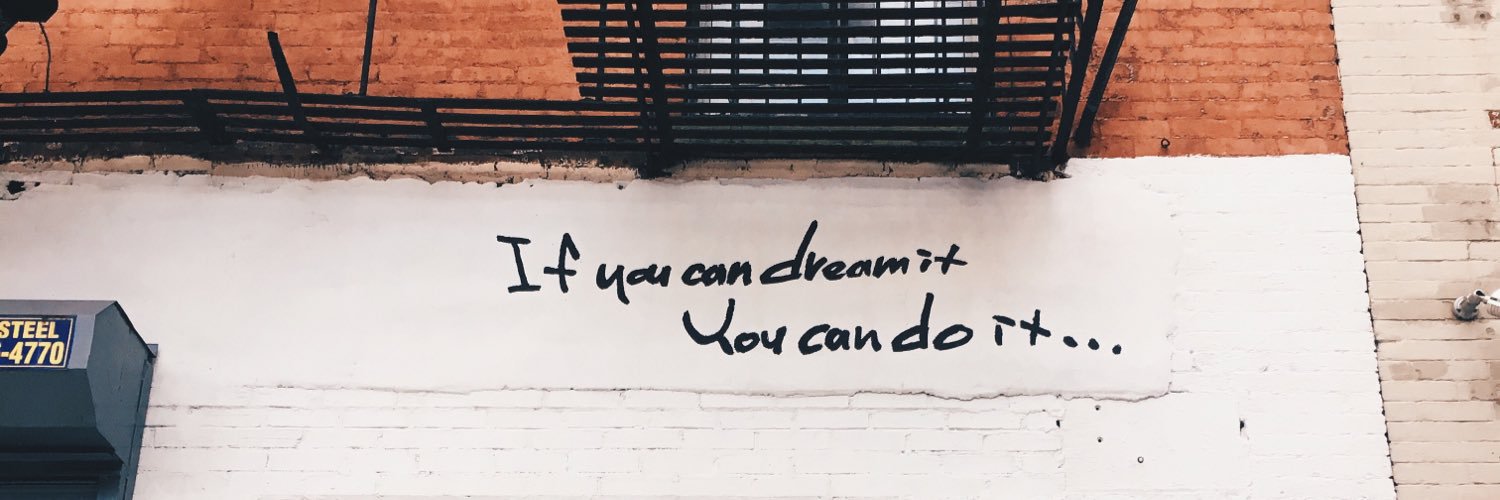 If you can dream it
You can do it...
STEEL
-4770